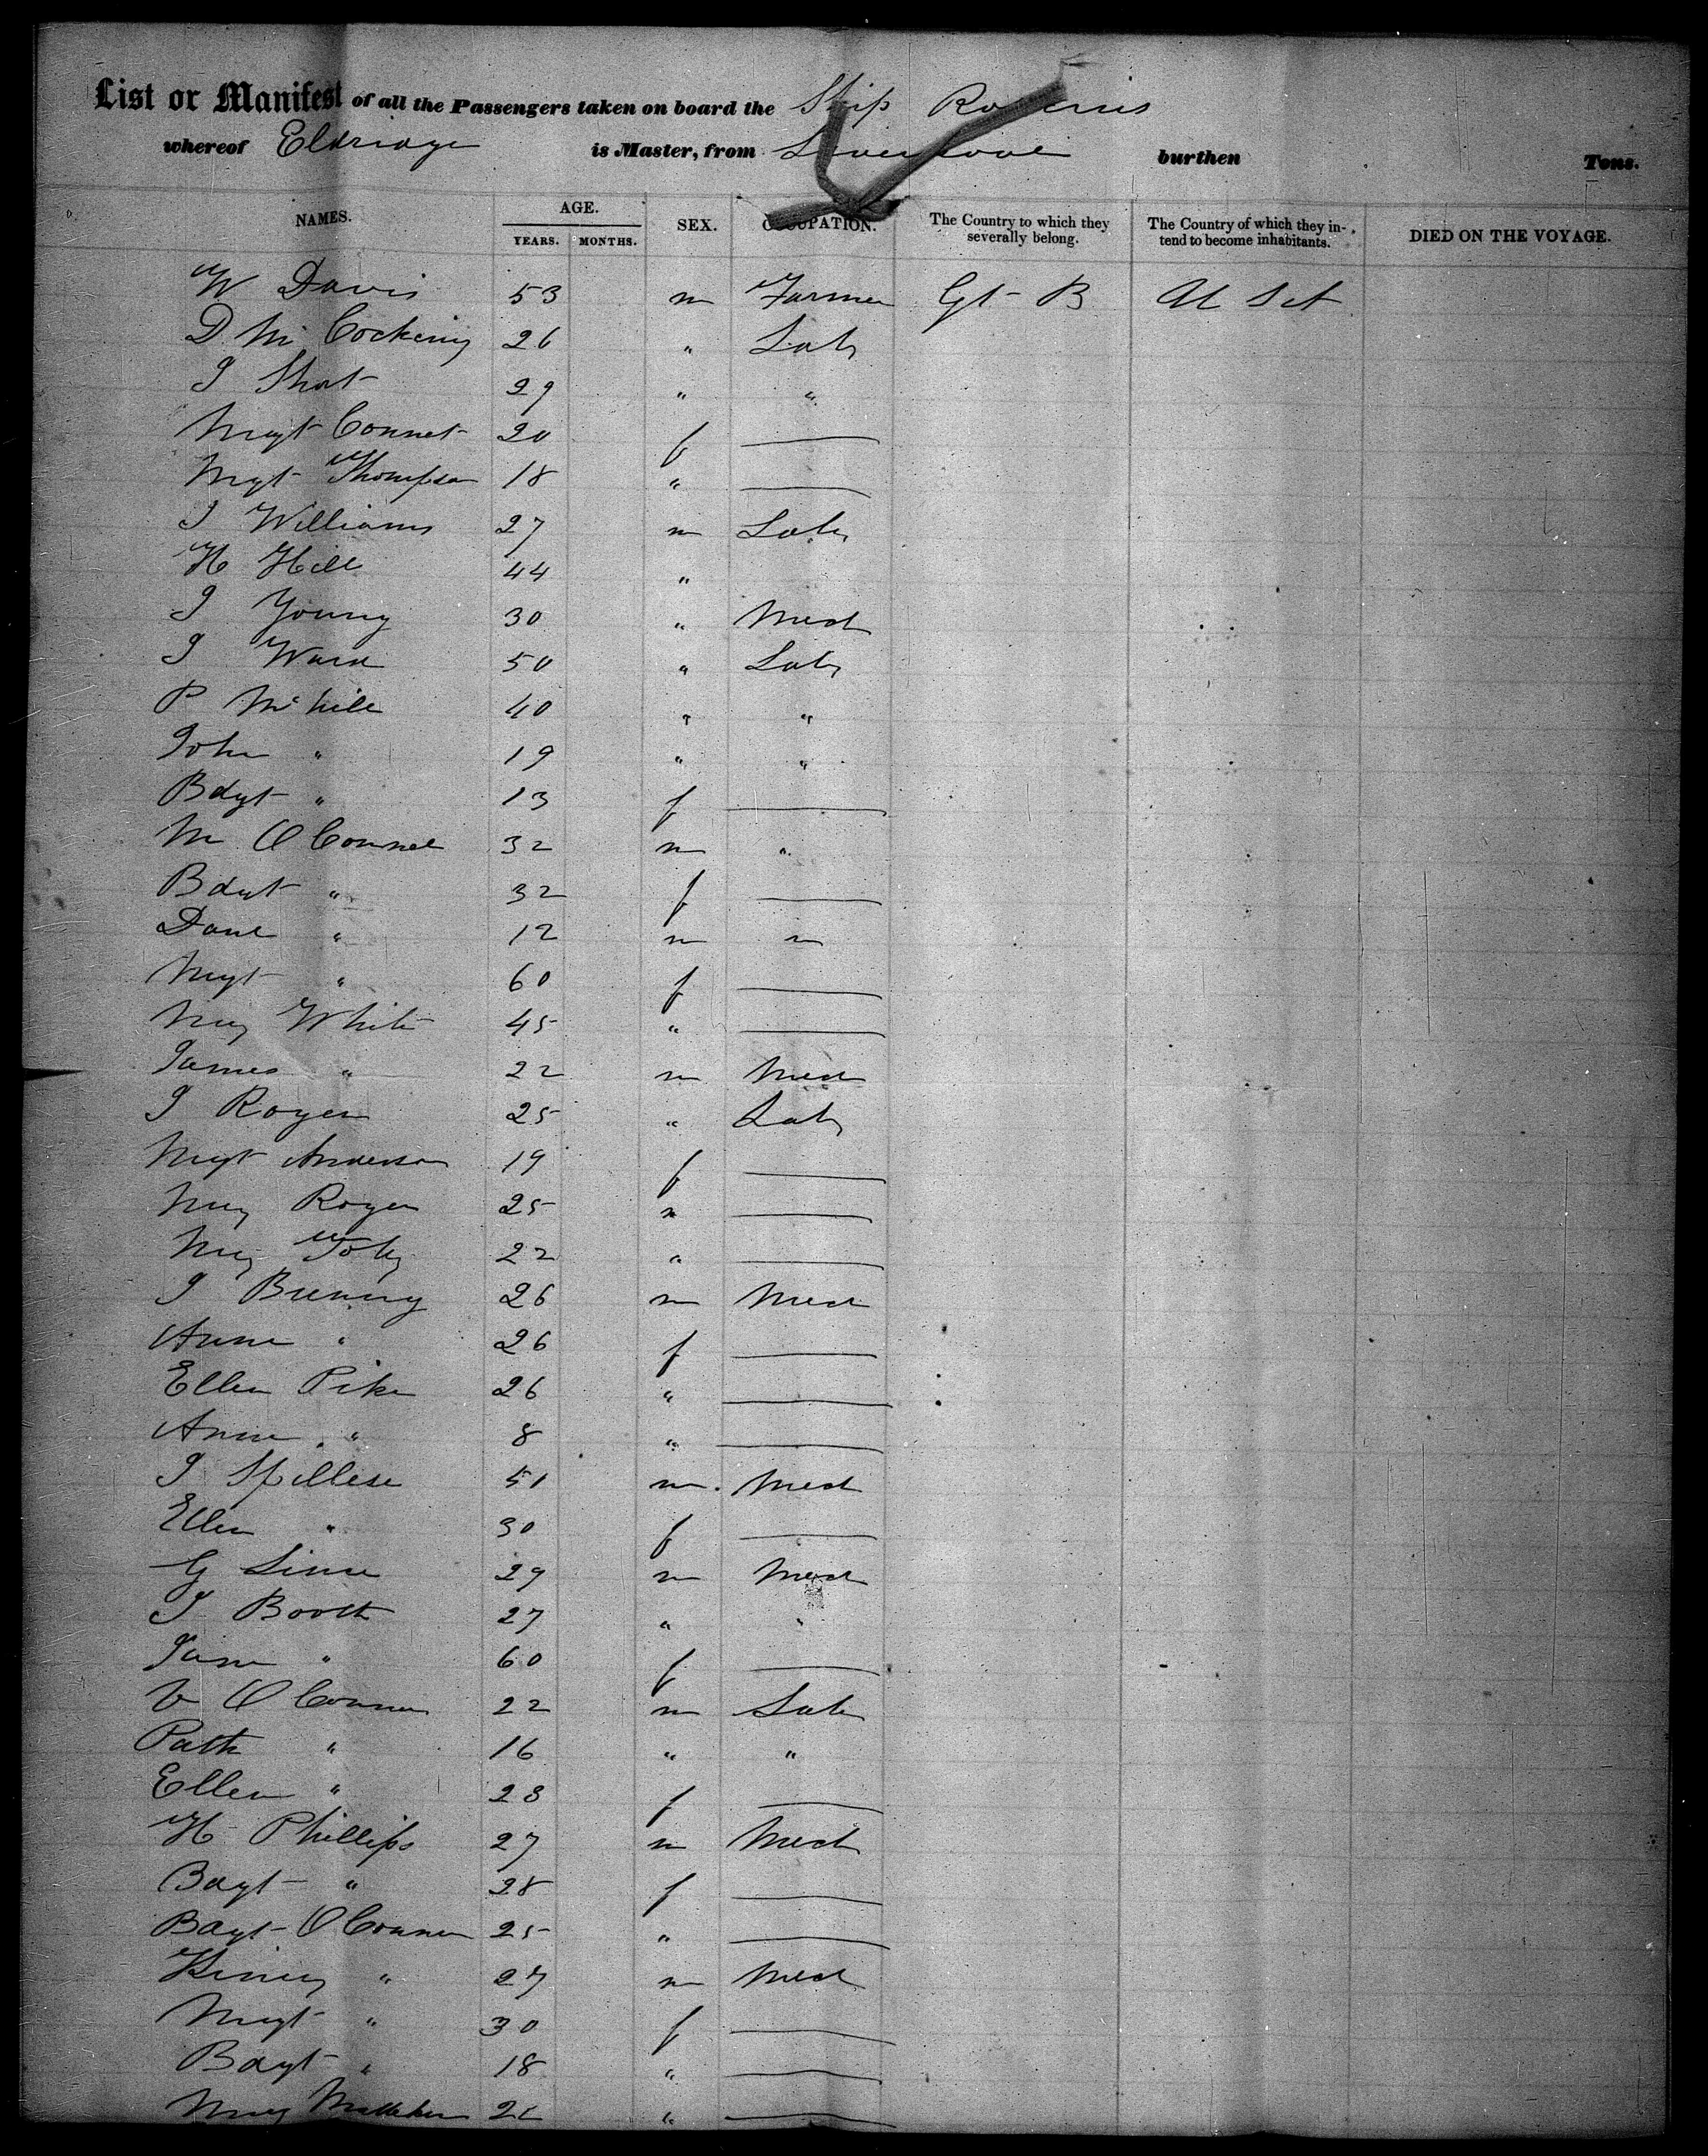 List or Manifest of all the Passengers taken on board the Ship
whereof Eldridge is Master, from Liverpool burthen Tons.
NAMES. AGE. YEARS. MONTHS. SEX. OCCUPATION. The Country to which they severally belong. The Country of which they intend to become inhabitants. DIED ON THE VOYAGE.
W Davis 53 m Farmer Gt B U St
D. Mc Cocking 26 " Labr
J Short 29 " "
Mgt Connet 20 f —
Mgt Thompson 18 " —
J Williams 27 m Labr
H Hill 44 "
J Young 30 " Mech
J Ward 50 " Labr
P McHile 40 " "
John " 19 " "
Bdgt " 13 f —
M O Connel 32 m "
Bdgt " 32 f —
Danl " 12 m "
Mgt " 60 f —
Mary White 45 " —
James " 22 m Mech
J Roger 25 " Labr
Mgt Anderson 19 f —
Mary Roger 25 " —
Mary 22 " —
J Bunny 26 m Mech
Anne " 26 f —
Ellen Pike 26 " —
Anne " 8 " —
J Spillese 51 m Mech
Ellen " 30 f —
G 29 m Mech
J Booth 27 " "
Jane " 60 f —
O Connor 22 m Labr
Patk " 16 " "
Ellen " 23 f —
H Phillips 27 m Mech
Bdgt " 28 f —
Bdgt O Connor 25 " —
" 27 m Mech
Mgt " 30 f —
Bdgt " 18 " —
Mary " —